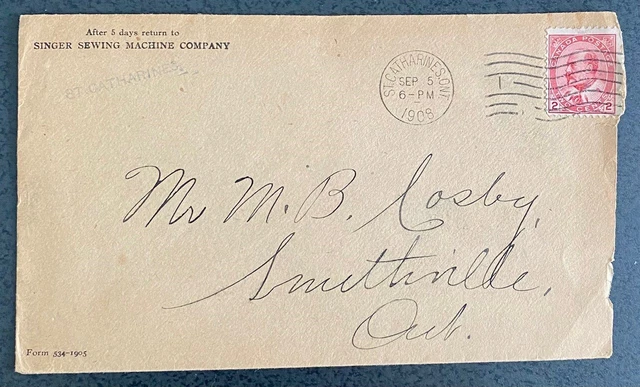 After 5 days return to
SINGER SEWING MACHINE COMPANY
ST. CATHARINES
ST. CATHARINES, ONT.
SEP 5
6-PM
1908
CANADA POSTAGE
2 CENTS 2
Mr M. B. Cosby,
Smithville,
Ont.
Form 534-1905